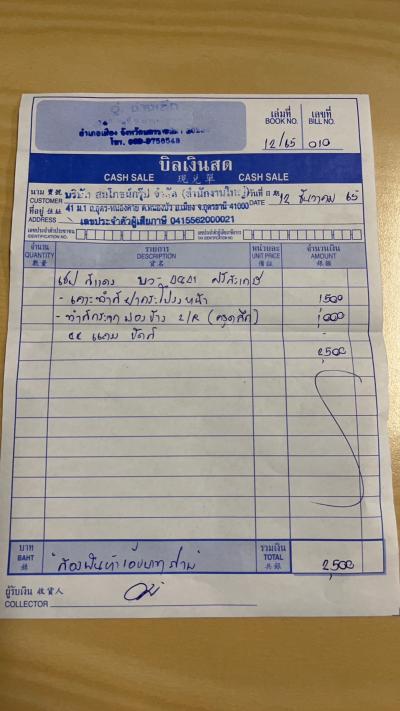 อู่ ช่างเล็ก
เล่มที่ เลขที่
BOOK NO. BILL NO.
12/65 010
บิลเงินสด
CASH SALE 現兑單 CASH SALE
นาม 寳號 บริษัท สมโภชน์กรุ๊ป จำกัด (สำนักงานใหญ่) วันที่
CUSTOMER DATE 12 ธันวาคม 65
ที่อยู่ 41 ม.1 ถ.อุดร-หนองคาย ต.หนองบัว อ.เมือง จ.อุดรธานี 41000
ADDRESS เลขประจำตัวผู้เสียภาษี 0415562000021
เลขประจำตัวประชาชน เลขประจำตัวผู้เสียภาษี
IDENTIFICATION NO. TAX IDENTIFICATION NO.
จำนวน รายการ หน่วยละ จำนวนเงิน
QUANTITY DESCRIPTION UNIT PRICE AMOUNT
數量 貨名 價銀 銀額
ศรีสะเกษ
- เคาะ-ทำสีฝากระโปรงหน้า 1,500
- ทำสีกระจกมองข้าง L/R (ครูดสึก) 1,000
2,500
บาท รวมเงิน
BAHT TOTAL
銖 共銀
สองพันห้าร้อยบาทถ้วน 2,500
ผู้รับเงิน 收貨人
COLLECTOR